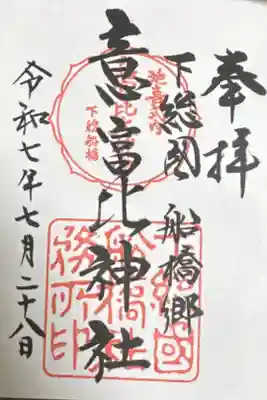 奉拝
下総国 船橋郷
意富比神社
令和七年七月二十八日
延喜式内
意富比神社
下総船橋